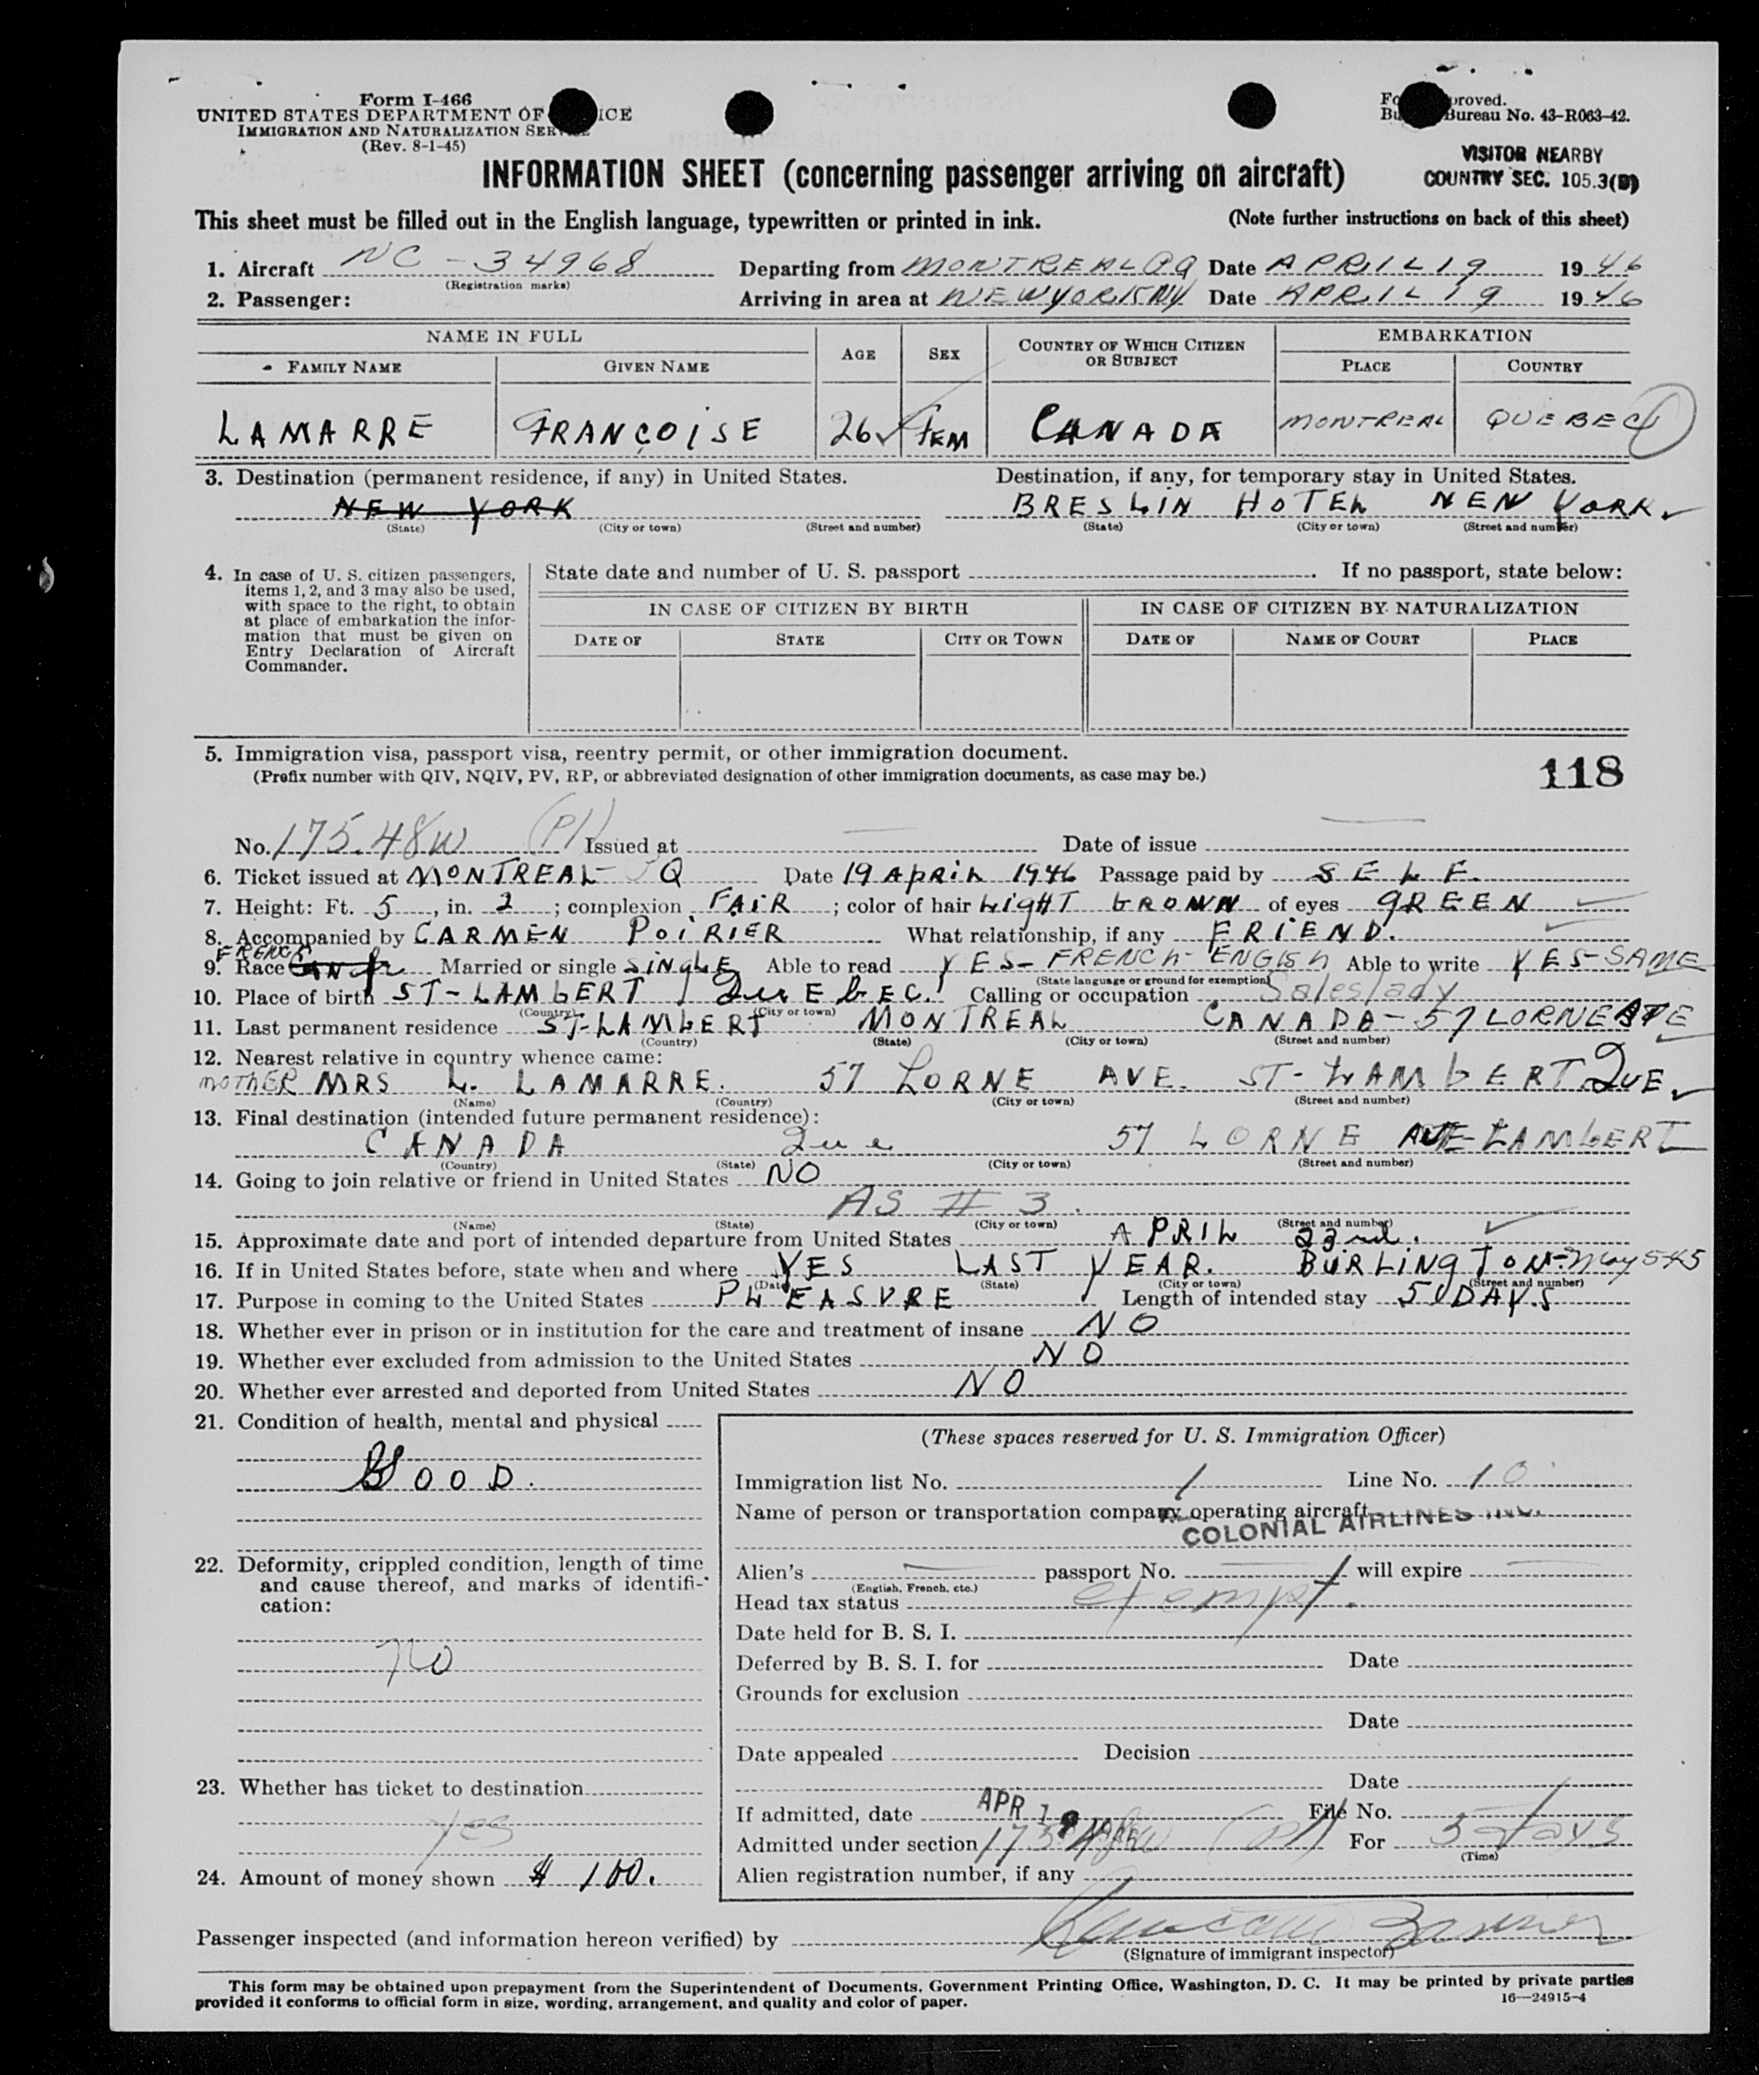 Form I-466
UNITED STATES DEPARTMENT OF ICE
IMMIGRATION AND NATURALIZATION SERVICE
(Rev. 8-1-45)
proved.
Bureau No. 43-R063-42.
VISITOR NEARBY
COUNTRY SEC. 105.3(B)
INFORMATION SHEET (concerning passenger arriving on aircraft)
This sheet must be filled out in the English language, typewritten or printed in ink. (Note further instructions on back of this sheet)
1. Aircraft NC-34968 Departing from MONTREAL PQ Date APRIL 19 1946
(Registration marks)
2. Passenger: Arriving in area at NEW YORK NY Date APRIL 19 1946
NAME IN FULL AGE SEX COUNTRY OF WHICH CITIZEN OR SUBJECT EMBARKATION
FAMILY NAME GIVEN NAME PLACE COUNTRY
LAMARRE FRANÇOISE 26 FEM CANADA MONTREAL QUEBEC
3. Destination (permanent residence, if any) in United States. Destination, if any, for temporary stay in United States.
NEW YORK BRESLIN HOTEL NEW YORK
(State) (City or town) (Street and number) (State) (City or town) (Street and number)
4. In case of U. S. citizen passengers, items 1, 2, and 3 may also be used, with space to the right, to obtain at place of embarkation the information that must be given on Entry Declaration of Aircraft Commander.
State date and number of U. S. passport . If no passport, state below:
IN CASE OF CITIZEN BY BIRTH IN CASE OF CITIZEN BY NATURALIZATION
DATE OF STATE CITY OR TOWN DATE OF NAME OF COURT PLACE
5. Immigration visa, passport visa, reentry permit, or other immigration document.
(Prefix number with QIV, NQIV, PV, RP, or abbreviated designation of other immigration documents, as case may be.)
118
No. 175.48W (Pl) Issued at Date of issue
6. Ticket issued at MONTREAL Q Date 19 APRIL 1946 Passage paid by SELF.
7. Height: Ft. 5, in. 2; complexion FAIR; color of hair LIGHT BROWN of eyes GREEN
8. Accompanied by CARMEN POIRIER What relationship, if any FRIEND.
FRENCH
9. Race Married or single SINGLE Able to read YES-FRENCH-ENGISH Able to write YES-SAME
(State language or ground for exemption)
10. Place of birth ST-LAMBERT QUEBEC. Calling or occupation Saleslady
(Country) (City or town)
11. Last permanent residence ST-LAMBERT MONTREAL CANADA-57 LORNE AVE
(Country) (State) (City or town) (Street and number)
12. Nearest relative in country whence came:
MOTHER MRS L. LAMARRE. 57 LORNE AVE. ST-LAMBERT QUE
(Name) (Country) (City or town) (Street and number)
13. Final destination (intended future permanent residence):
CANADA Que 57 LORNE AVE LAMBERT
(Country) (State) (City or town) (Street and number)
14. Going to join relative or friend in United States NO
AS # 3.
(Name) (State) (City or town) (Street and number)
15. Approximate date and port of intended departure from United States APRIL 23rd.
16. If in United States before, state when and where YES LAST YEAR. BURLINGTON-May 545
(Date) (State) (City or town) (Street and number)
17. Purpose in coming to the United States PLEASURE Length of intended stay 5 DAYS
18. Whether ever in prison or in institution for the care and treatment of insane NO
19. Whether ever excluded from admission to the United States NO
20. Whether ever arrested and deported from United States NO
21. Condition of health, mental and physical
GOOD.
22. Deformity, crippled condition, length of time and cause thereof, and marks of identification:
no
23. Whether has ticket to destination
yes
24. Amount of money shown $ 100.
(These spaces reserved for U. S. Immigration Officer)
Immigration list No. 1 Line No. 10
Name of person or transportation company operating aircraft
COLONIAL AIRLINES INC.
Alien's passport No. will expire
(English, French, etc.)
Head tax status exempt.
Date held for B. S. I.
Deferred by B. S. I. for Date
Grounds for exclusion
Date
Date appealed Decision
Date
If admitted, date APR 19 1946 File No.
Admitted under section 175.48W (Pl) For 5 days
(Time)
Alien registration number, if any
Passenger inspected (and information hereon verified) by
(Signature of immigrant inspector)
This form may be obtained upon prepayment from the Superintendent of Documents, Government Printing Office, Washington, D. C. It may be printed by private parties
provided it conforms to official form in size, wording, arrangement, and quality and color of paper.
16—24915-4